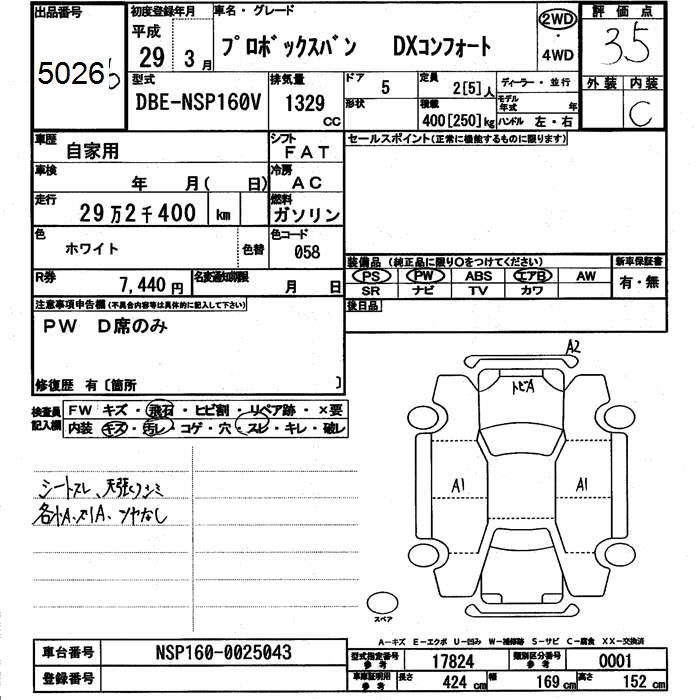 出品番号
5026
初度登録年月
平成
29年 3月
車名・グレード
プロボックスバン DXコンフォート
2WD
・
4WD
評価点
3.5
外装 内装
C
型式
DBE-NSP160V
排気量
1329
CC
ドア
5
形状
定員
2[5]人
積載
400[250]kg
ディーラー・並行
モデル年式 年
ハンドル 左・右
車歴
自家用
シフト
FAT
車検
年 月( 日)
冷房
AC
走行
29万2千400 km
燃料
ガソリン
色
ホワイト
色替
色コード
058
R券
7,440円
名変通知期限
月 日
セールスポイント(正常に機能するものに限ります)
装備品 (純正品に限り○をつけてください)
新車保証書
PS PW ABS エアB AW
SR ナビ TV カワ
有・無
後日品
注意事項申告欄(不具合内容等は具体的に記入して下さい)
PW D席のみ
修復歴 有〔箇所 〕
検査員
記入欄
FW キズ・飛石・ヒビ割・リペア跡・×要
内装 キズ・汚レ・コゲ・穴・スレ・キレ・破レ
シートスレ、天張りシミ
各小A、スリA、ツヤなし
A2
トビA
A1
A1
スペア
A-キズ E-エクボ U-凹み W-補修跡 S-サビ C-腐食 XX-交換済
車台番号
NSP160-0025043
登録番号
型式指定番号
参考
17824
類別区分番号
参考
0001
車庫証明用
参考
長さ
424 cm
幅
169 cm
高さ
152 cm